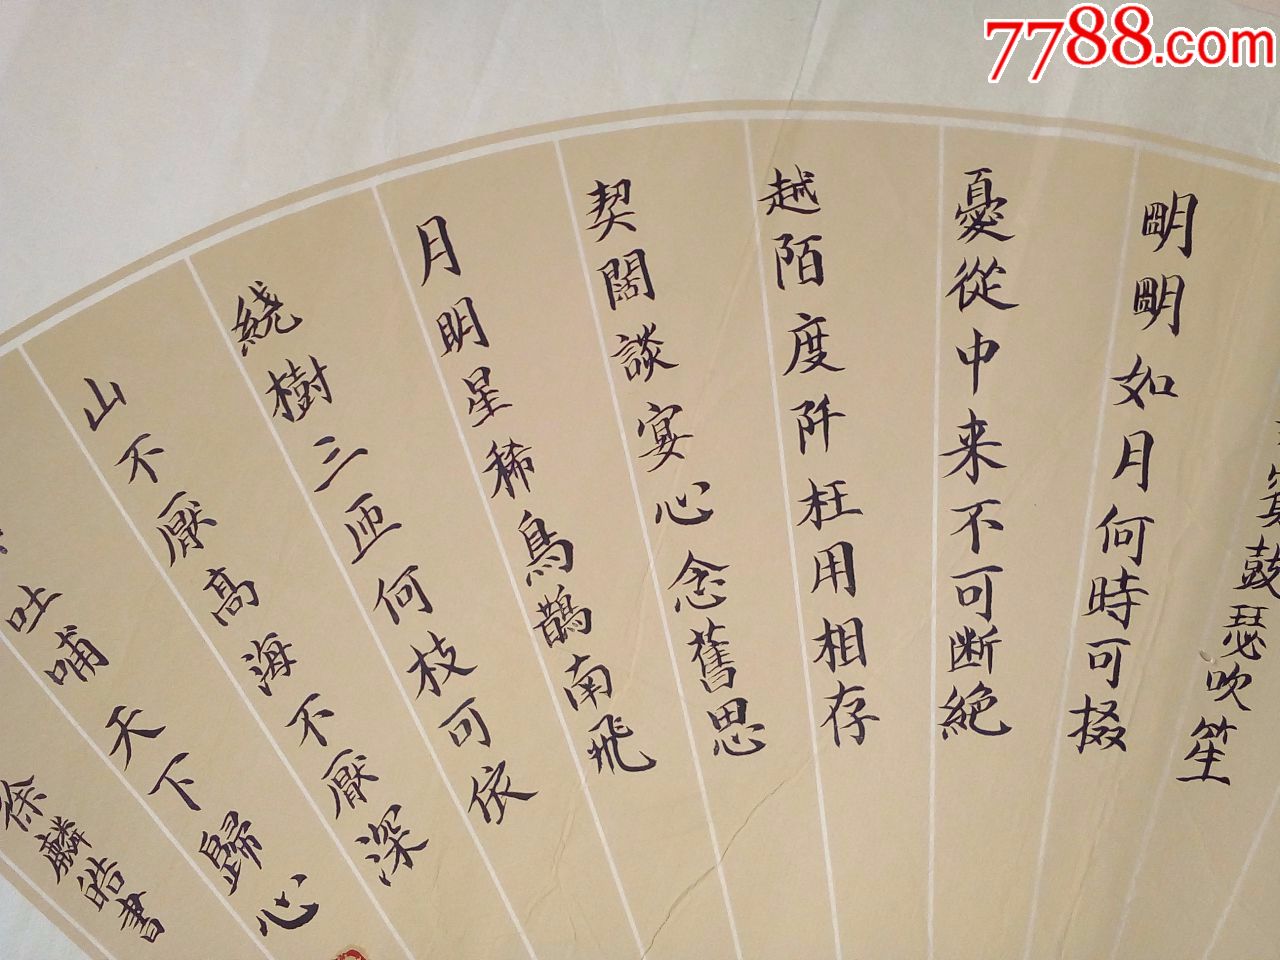 7788.com
賓鼓瑟吹笙
朙朙如月何時可掇
憂從中来不可断絶
越陌度阡枉用相存
契闊談宴心念舊思
月明星稀鳥鵲南飛
繞樹三匝何枝可依
山不厭高海不厭深
吐哺天下歸心
徐麟皓書